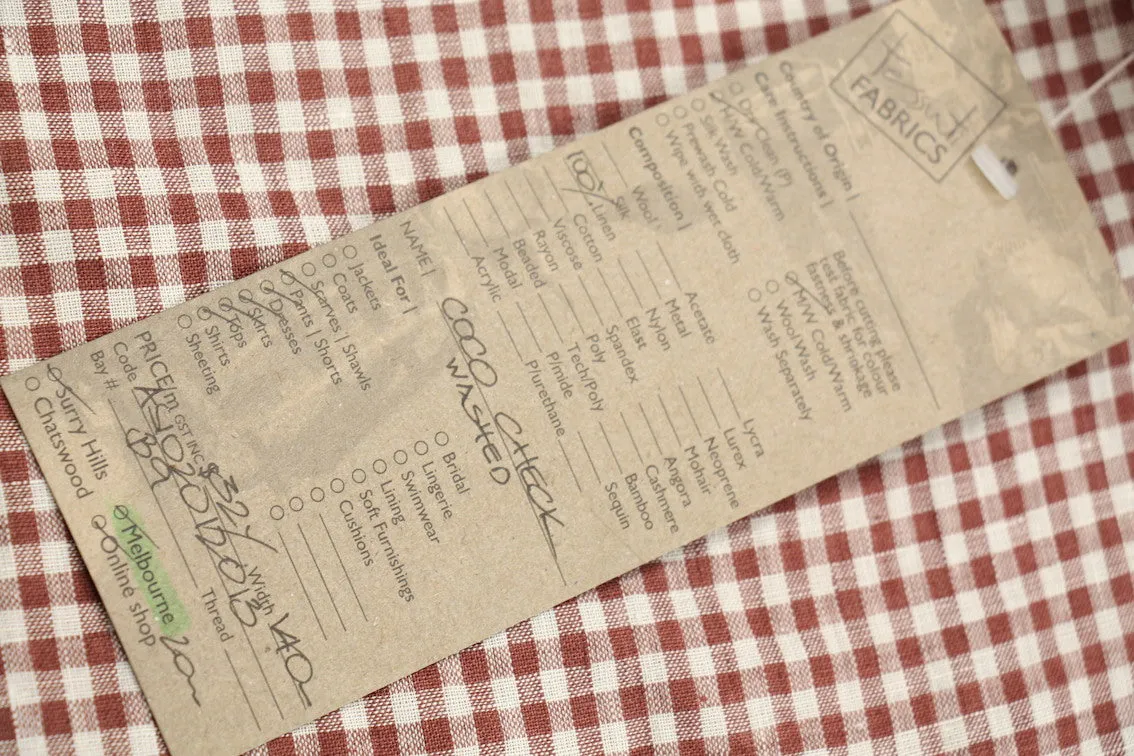 FABRICS
Country of Origin |
Care Instructions |
Dry Clean (P)
M/W Cold/Warm
Silk Wash
Prewash Cold
Wipe with wet cloth
Before cutting please
test fabric for colour
fastness & shrinkage
M/W Cold/Warm
Wool Wash
Wash Separately
Composition |
Wool
Silk
100% Linen
Cotton
Viscose
Rayon
Beaded
Modal
Acrylic
Acetate
Metal
Nylon
Elast
Spandex
Poly
Tech/Poly
P/mide
P/urethane
Lycra
Lurex
Neoprene
Mohair
Angora
Cashmere
Bamboo
Sequin
NAME | COCO CHECK
WASHED
Ideal For |
Jackets
Coats
Scarves | Shawls
Pants | Shorts
Dresses
Skirts
Tops
Shirts
Sheeting
Bridal
Lingerie
Swimwear
Lining
Soft Furnishings
Cushions
PRICE/m GST INC. $32 Width 140
Code
Bay # Thread
Surry Hills
Chatswood
Melbourne 20m
Online shop